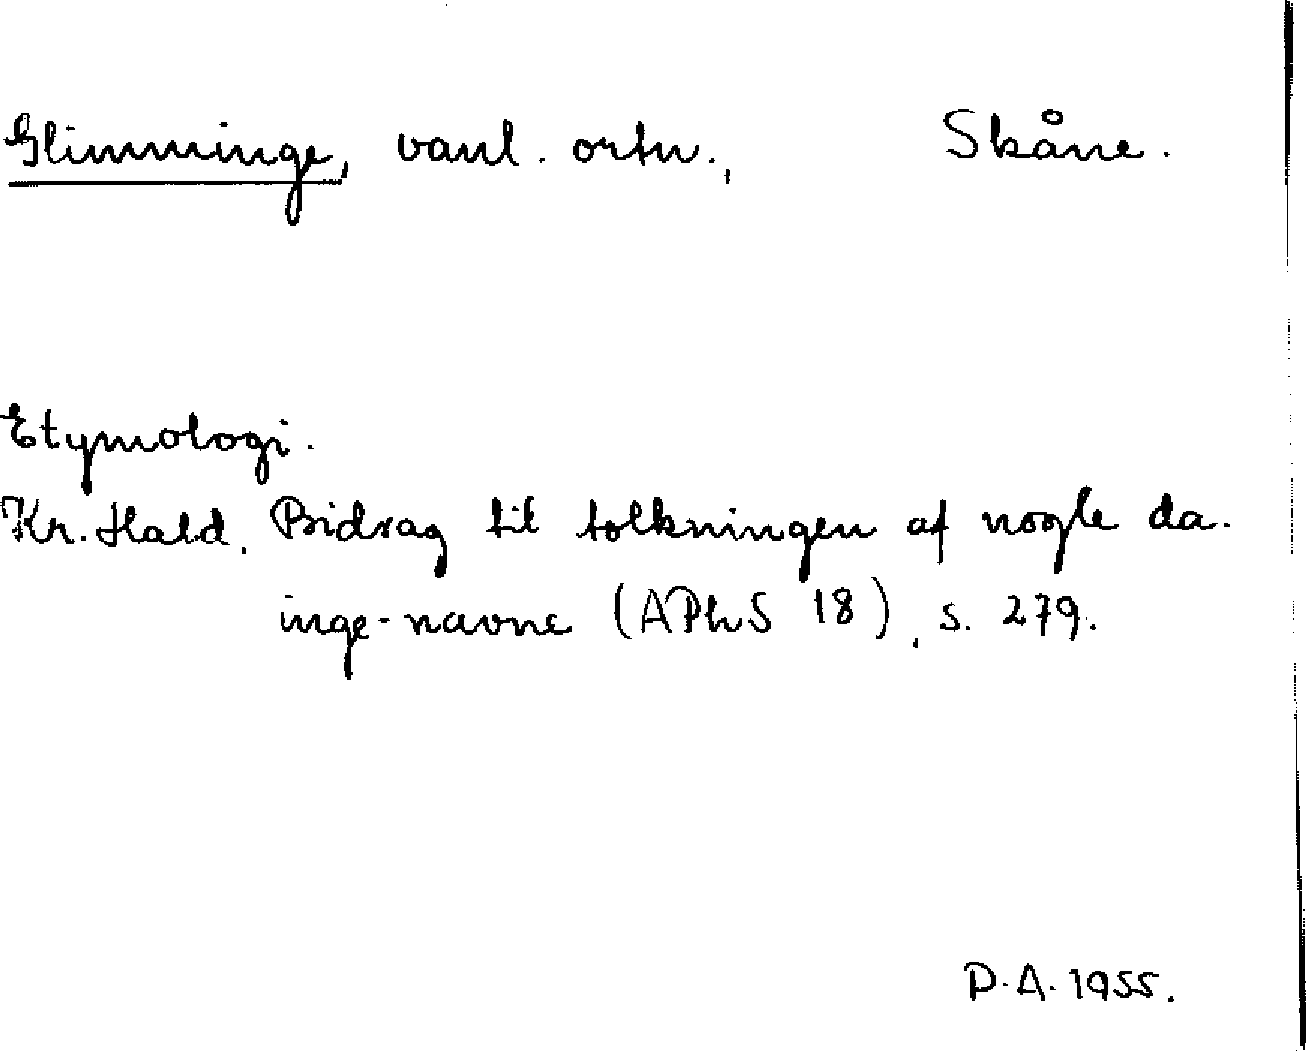 Glimminge, vanl. ortn., Skåne.
Etymologi.
Kr. Hald, Bidrag til tolkningen af nogle da.
inge-navne (APhS 18), s. 279.
D.A. 1955.